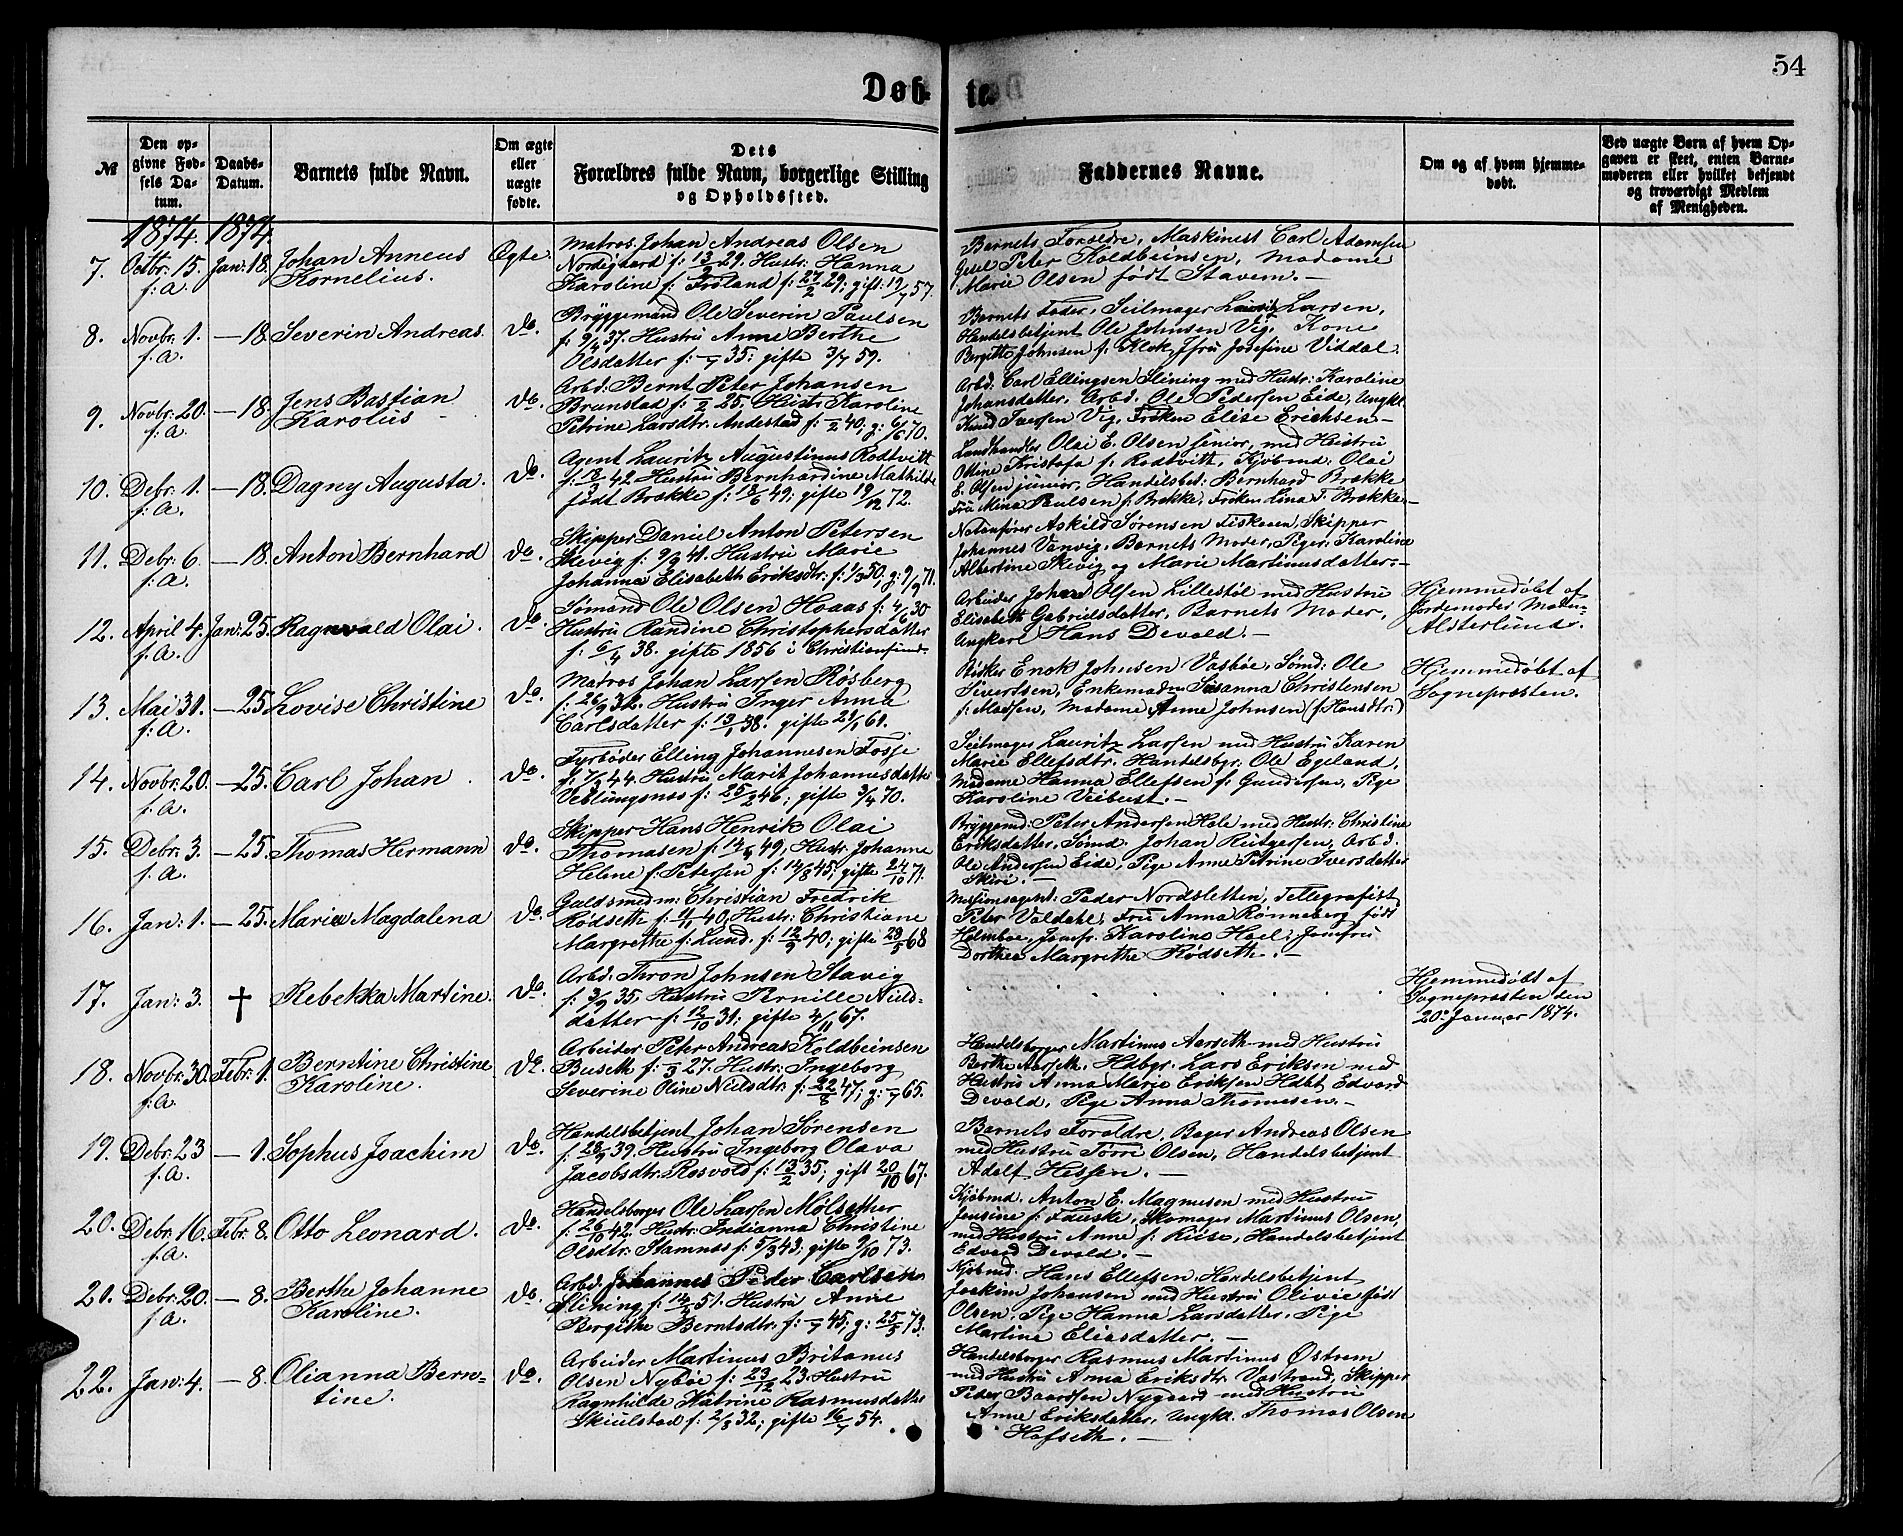 54
Døb- te.
№
Den opgivne Fødsels Datum.
Daabs-Datum.
Barnets fulde Navn.
Om ægte eller uægte fødte.
Dets Forældres fulde Navn, borgerlige Stilling og Opholdssted.
Faddernes Navne.
Om og af hvem hjemmedøbt.
Ved uægte Børn af hvem Opgaven er skeet, enten Barnemoderen eller hvilket bekjendt og troværdigt Medlem af Menigheden.
1874. 1874.
7. Octbr: 15. f: a. Jan: 18. Johan Anneus Kornelius. Ægte.
Matros Johan Andreas Olsen
Nordigaard f: 13/2 29. Hustr: Hanna
Karoline f: Frøland f: 27/2 29; gift: 19/7 57.
Barnets Forældre, Maskinist Carl Adamsen
Gesel Peter Koldbeinsen, Madame
Marie Olsen født Stavem. —
8. Novbr: 1. f. a. — 18. Severin Andreas. do.
Bryggemand Ole Severin Paulsen
f: 9/4 37. Hustru Anne Berthe
Olsdatter f: 35; gifte 3/7 59.
Barnets Fader, Seilmager Lauritz Larsen,
Handelsbetjent Ole Johnsen Vig, Kone
Birgitte Johnsen f: Klok, Jfru Josefine Viddal.
9. Novbr: 20. f: a. — 18. Jens Bastian Karolus do.
Arbd: Bernt Peter Johansen
Brunstad f: 25. Hustr: Karoline
Petrine Larsdtr: Andestad f: 40; g: 6/6 70.
Arbd. Carl Ellingsen Slining med Hustr: Karoline
Johansdatter, Arbd. Ole Pedersen Eide, Ungk:
Knud Iversen Vig, Frøken Elise Erichsen —
10. Debr: 1. f: a. — 18. Dagny Augusta. do.
Agent Lauritz Augustinus Rødtvitt
42 Hustru Bernhardine Mathilde
født Brække f: 18/6 49; gifte 19/12 72.
Landhandler Olai E. Olsen senior, med Hustru
Ottine Kristofa f: Rødtvitt, Kjøbmd: Olai
E. Olsen junior, Handelsbet: Bernhard Brække
Fru Mina Paulsen f: Brække, Frøken Lina T. Brække —
11. Debr: 6. f: a. — 18. Anton Bernhard do.
Skipper Daniel Anton Petersen
Skevig f: 9/9 41. Hustru Marie
Johanna Elisabeth Eriksdtr: f: 1/3 50, g: 9/9 71.
Notanfører Askild Sørensen Fiskaaen, Skipper
Johannes Vanvig, Barnets Moder, Piger: Karoline
Albertine Skevig og Marie Martinusdatter. —
12. April 4. f. a. Jan: 25. Ragnvald Olai. do.
Sømand Ole Olsen Hoaas f: 4/6 30
Hustru Randine Christophersdatter
f: 6/4 38. gifte 1856 i Christiansund.
Arbeider Johan Olsen Lillestøl med Hustru
Elisabeth Gabrielsdatter, Barnets Moder,
Ungkarl Hans Devold. —
Hjemmedøbt af
Jordemoder Madm:
Alsterlund.
13. Mai 31. f: a. — 25. Lovise Christine do.
Matros Johan Larsen Røsberg
f: 26/9 32. Hustru Inger Anna
Carlsdatter f: 13/1 38. gifte 61.
Fisker Enok Johnsen Vasbøe, Sømd: Ole
Sivertsen, Enkemadm Susanna Christensen
f: Madsen, Madame Anne Johnsen (f: Hansdtr:)
Hjemmedøbt af
Sognepræsten.
14. Novbr: 20. f: a. — 25. Carl Johan do.
Fyrbøder Elling Johannesen Fosse
f: 7/5 44. Hustru Marit Johannesdatter
Veblungsnæs f: 25/2 46; gifte 3/4 70.
Seilmager Lauritz Larsen med Hustru Karen
Marie Ellefsdtr. Handelsbgr. Ole Egeland,
Madame Hanna Ellefsen f: Gundersen, Pige
Karoline Veibust. —
15. Debr: 3. f. a. — 25. Thomas Hermann do.
Skipper Hans Henrik Olai
Thomasen f: 49, Hustr: Johanne
Helene f: Petersen f: 14/8 45; gifte 24/10 71.
Bryggemd: Peter Andersen Hole med Hustr: Christine
Eriksdatter, Sømd: Johan Rütgersen, Arbd.
Ole Andersen Eide, Pige Anne Petrine Iversdatter
16. Jan: 1. — 25. Maria Magdalena do.
Guldsmedm: Christian Fredrik
Rødseth f: 11/11 40, Hustr: Christiane
Margrethe f: Lund. f: 12/9 40; gifte 28/5 68
Missionsagent: Peder Nordsletten, Tellegrafist
Peter Valdahl, Fru Anna Rønneberg født
Holmboe, Jomfr. Karoline Hoel, Jomfru
Dorthea Margrethe Rødseth. —
17. Jan: 3. † Rebekka Martine. do.
Arbd: Thron Johnsen Stavig
f: 3/9 35, Hustru Pernille Nielsdatter
f: 12/10 31; gifte 4/11 67.
Hjemmedøbt af
Sognepræsten den
20de Januar 1874.
18. Novbr: 30. f: a. Febr: 1. Berntine Christine Karoline. do.
Arbeider Peter Andreas Koldbeinsen
Buseth f: 27. Hustr: Ingeborg
Severine Oline Nielsdtr: f: 22/8 47; g: 65.
Handelsborger Martinus Aarseth med Hustru
Berthe Aarseth, Hdbgr: Lars Eriksen med
Hustru Anna Marie Eriksen, Hdbt. Edvard
Devold, Pige Anna Thomesen. —
19. Debr: 23 f. a. — 1. Sophus Joachim do.
Handelsbetjent Johan Sørensen
f: 28/5 39. Hustru Ingeborg Olava
Jacobsdtr: Røsvold f: 13/2 35; gift 20/10 67.
Barnets Forældre, Bager Andreas Olsen
med Hustru Tørre Olsen, Handelsbetjent
Adolf Hessen. —
20. Debr: 16. f. a. Febr: 8. Otto Leonard. do.
Handelsborger Ole Larsen Mølsether
f: 26/10 42, Hustr: Indianna Christine
Olsdtr: Stamnæs f: 5/3 43; gifte 9/10 73.
Kjøbmd: Anton E. Magnusen med Hustru
Jensine f: Fauske, Skomager Martinus Olsen,
med Hustru Anne f: Riise, Handelsbetjent
Edvard Devold. —
21. Debr: 20. f. a. — 8. Berthe Johanne Karoline. do.
Arbd. Johannes Peder Carlsen
Slining f: 51. Hustru Anne
Bergithe Berntsdtr: f: 45; g: 25/5 73.
Kjøbmd: Hans Ellefsen, Handelsbetjent
Joakim Johansen med Hustru Olivie født
Olsen, Pige Hanna Larsdatter, Pige
Martina Eliasdatter. —
22. Jan: 4. — 8. Olianna Berntine. do.
Arbeider Martinus Britanus
Olsen Nybøe f: 23/12 23. Hustru
Ragnhilde Katrine Rasmusdatter
Skiulstad f: 2/8 32; gifte 54.
Handelsborger Rasmus Martinus Østrem
med Hustru Anna Eriksdtr: Vastrand, Skipper
Peder Baardsen Nygaard med Hustru
Anne Eriksdatter, Ungk. Thomas Olsen
Hofseth. —